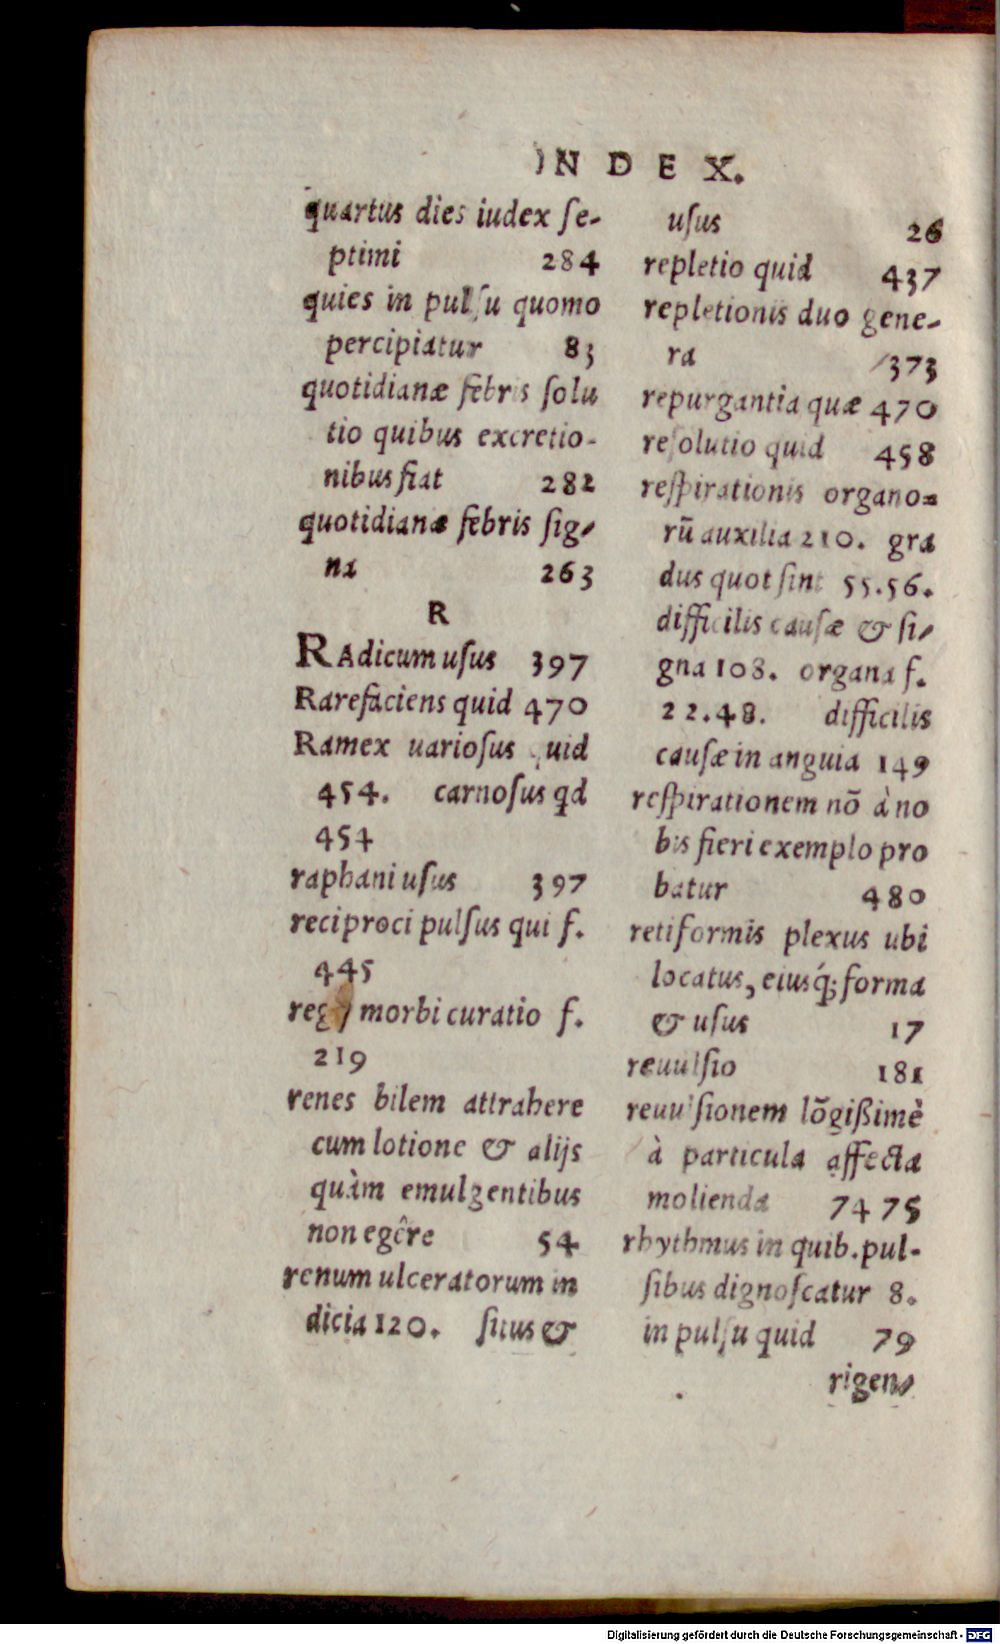 INDEX.
quartus dies iudex ſe-
ptimi 284
quies in pulſu quomo
percipiatur 83
quotidianæ febris ſolu
tio quibus excretio-
nibus fiat 282
quotidianæ febris ſig-
na 263
R
RAdicum uſus 397
Rarefaciens quid 470
Ramex uarioſus quid
454. carnoſus qd
454
raphani uſus 397
reciproci pulſus qui f.
445
regij morbi curatio f.
219
renes bilem attrahere
cum lotione & alijs
quàm emulgentibus
non egêre 54
renum ulceratorum in
dicia 120. ſitus &
uſus 26
repletio quid 437
repletionis duo gene-
ra 373
repurgantia quæ 470
reſolutio quid 458
reſpirationis organo-
rū auxilia 210. gra
dus quot ſint 55.56.
difficilis cauſæ & ſi-
gna 108. organa f.
22.48. difficilis
cauſæ in anguia 149
reſpirationem nō à no
bis fieri exemplo pro
batur 480
retiformis plexus ubi
locatus, eiusq́; forma
& uſus 17
reuulſio 181
reuulſionem lōgißimè
à particula affecta
molienda 74 75
rhythmus in quib. pul-
ſibus dignoſcatur 8.
in pulſu quid 79
rigen-
Digitalisierung gefördert durch die Deutsche Forschungsgemeinschaft - DFG